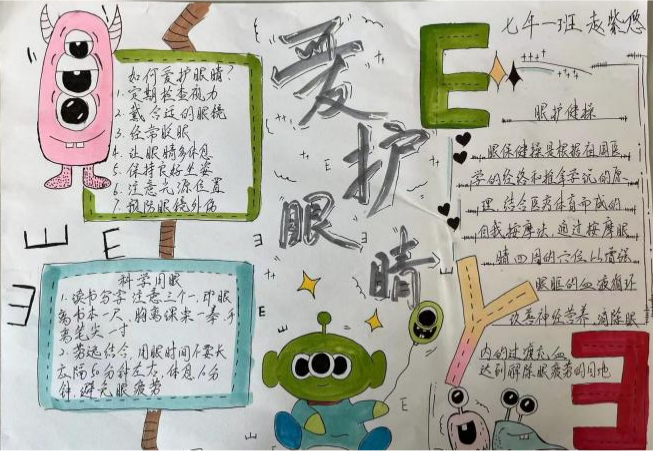 七年一班 赵紫悠
爱护
眼睛
如何爱护眼睛?
1. 定期检查视力
2. 戴合适的眼镜
3. 经常眨眼
4. 让眼睛多休息
5. 保持良好坐姿
6. 注意光源位置
7. 预防眼镜外伤
科学用眼
1. 读书写字注意三个一,即眼
离书本一尺,胸离课桌一拳,手
离笔尖一寸
2. 劳逸结合,用眼时间不要长
左右,休息10分
钟,避免眼疲劳
眼护健操
眼保健操是根据祖国医
学的经络和推拿学说的原
理,结合医疗体育而成的
自我按摩法,通过按摩眼
睛四周的穴位,以增强
眼眶的血液循环
改善神经营养,消除眼
内的过度充血
达到解除眼疲劳的目地
E
E
E
E
Y
E